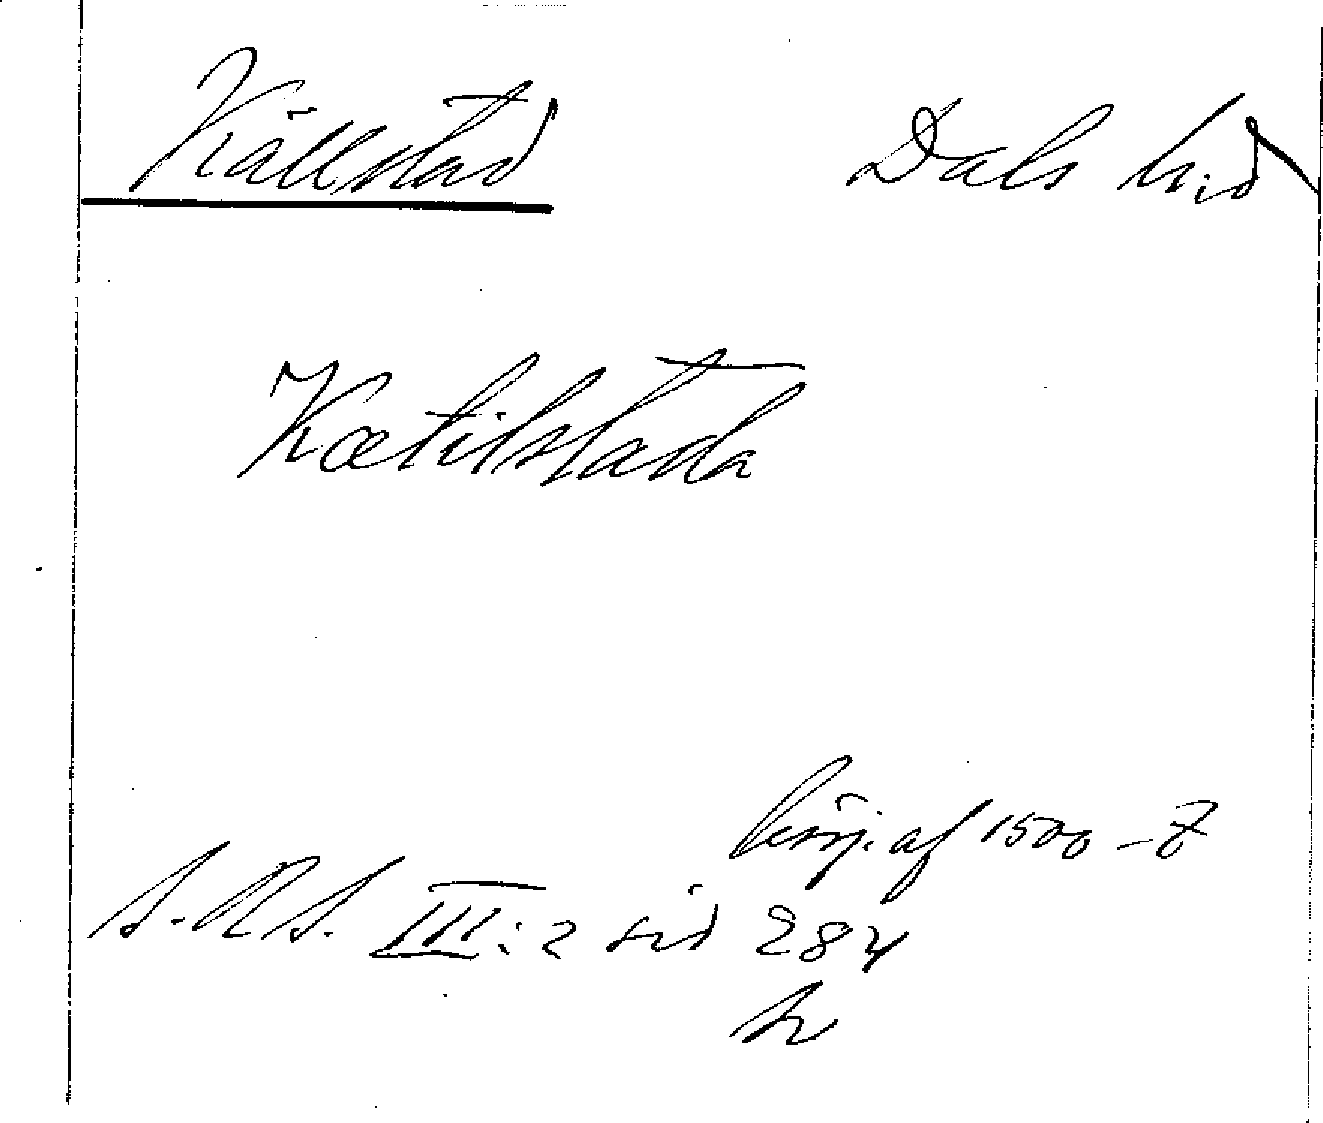 Källstad Dals h:d
Kætilstada
börj. af 1500-t
S.R.S. III:2 sid 284
h